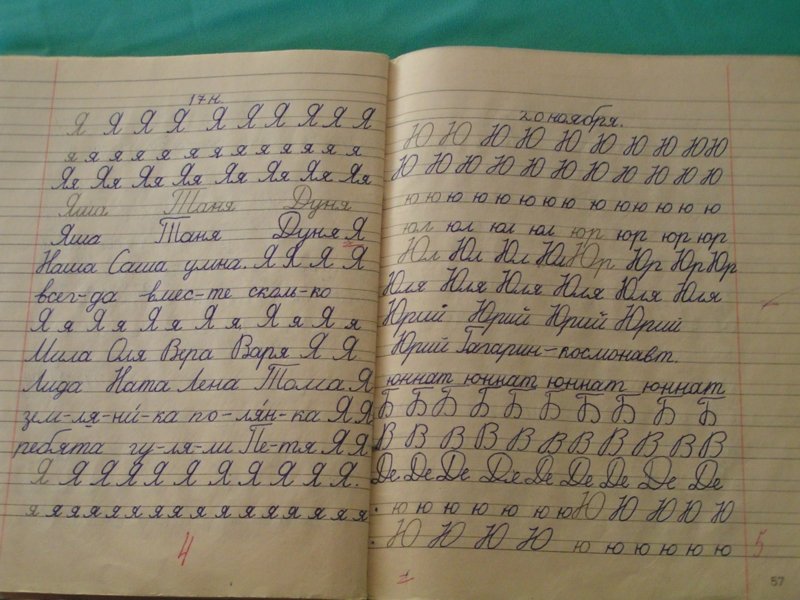 17 н.
Я Я Я Я Я Я Я Я Я Я
я я я я я я я я я я я я я
Яя Яя Яя Яя Яя Яя Яя Яя
Яша Таня Дуня
Яша Таня Дуня Я
Наша Саша умна. Я Я Я Я
всег-да вмес-те сколь-ко
Я я Я я Я я Я я Я я Я я
Мила Оля Вера Варя Я Я
Лида Ната Лена Тома Я
зем-ля-ни́-ка по-ля́н-ка Я Я
ребята гу-ля-ли Пе-тя Я Я
Я Я Я Я Я Я Я Я Я Я Я.
я я я я я я я я я я я я я я я я
4
20 ноября.
Ю Ю Ю Ю Ю Ю Ю Ю Ю Ю
Ю Ю Ю Ю Ю Ю Ю Ю Ю Ю
ю ю ю ю ю ю ю ю ю ю ю ю ю ю
юл юл юл юл юр юр юр юр
Юл Юл Юл Юл Юр Юр Юр Юр
Юля Юля Юля Юля Юля Юля
Юрий Юрий Юрий Юрий
Юрий Гагарин-космонавт.
юннат юннат юннат юннат
Б Б Б Б Б Б Б Б Б
В В В В В В В В В В
Де Де Де Дя Де Де Де Де Де Де
ю ю ю ю ю ю ю Ю Ю Ю Ю Ю Ю
Ю Ю Ю Ю ю ю ю ю ю ю
5
57